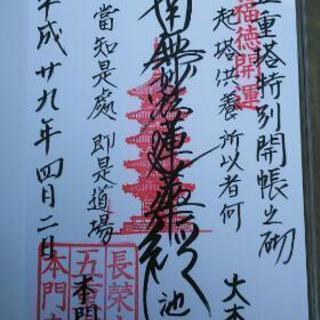 五重塔特別開帳之砌
福徳開運
起塔供養所以者何
大本
南無妙法蓮華経
池
當知是處 即是道場
平成廿九年四月二日
長榮
五重
本門
本門